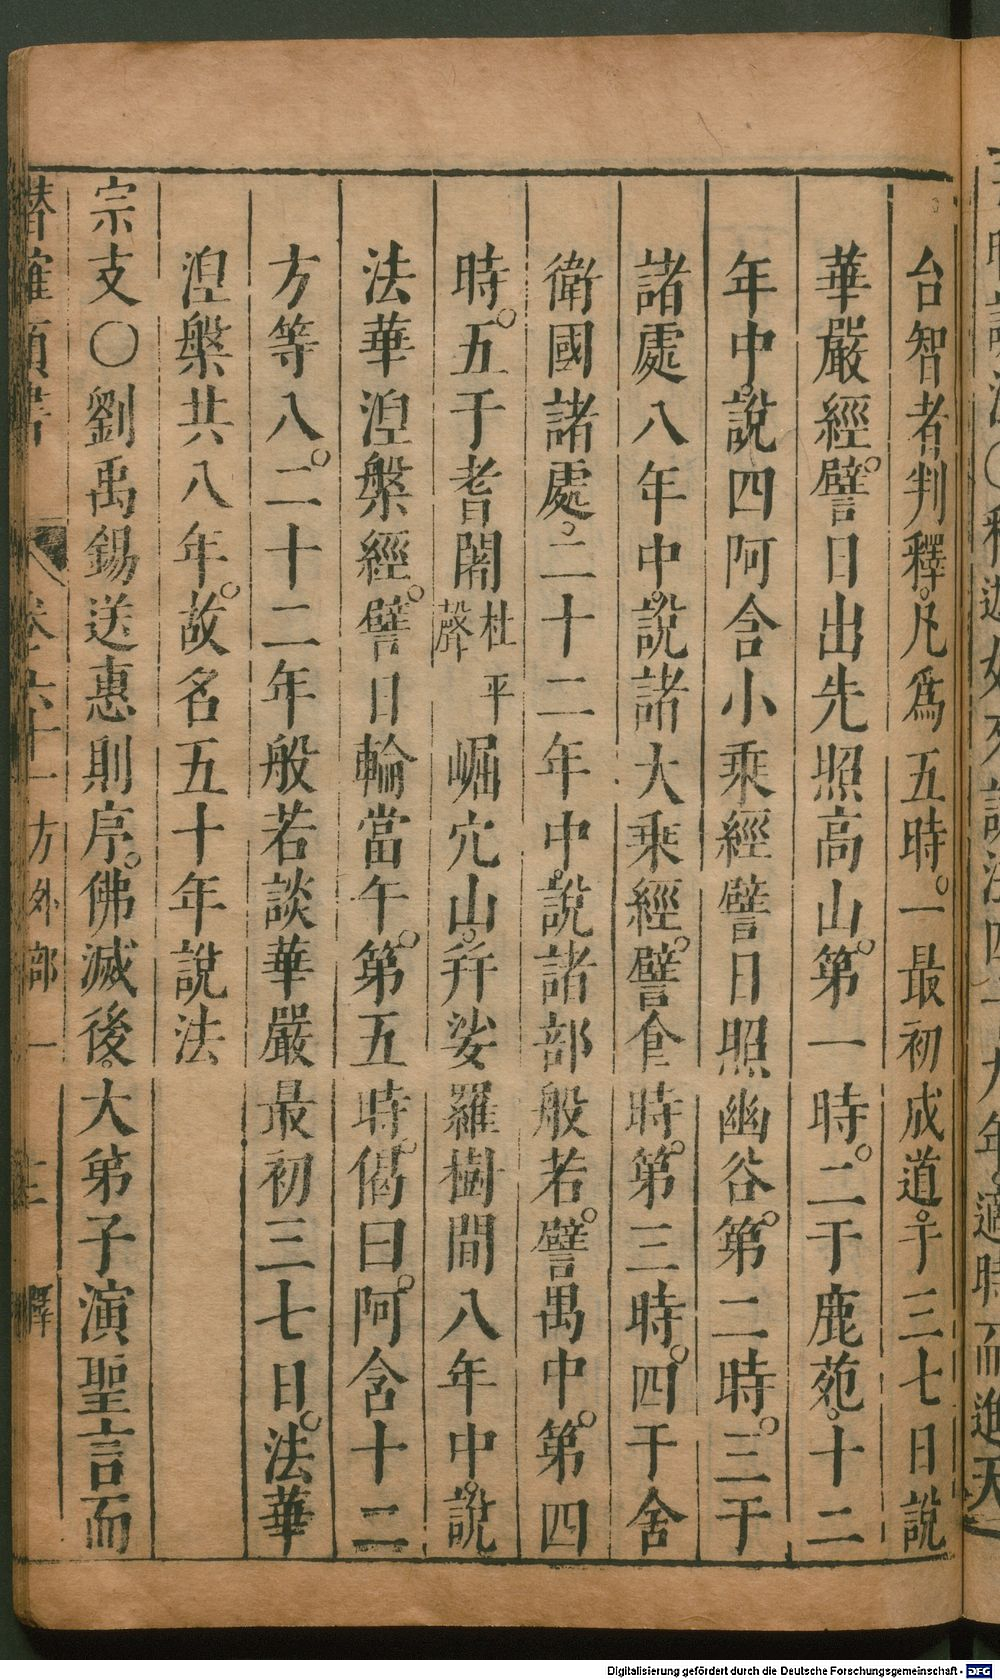 台智者判釋。凡爲五時。一最初成道。于三七日說
華嚴經。譬日出先照高山。第一時。二于鹿苑。十二
年中。說四阿含小乘經譬日照幽谷。第二時。三于
諸處八年中。說諸大乘經。譬食時。第三時。四于舍
衛國諸處。二十二年中。說諸部般若。譬禺中。第四
時。五于耆闍杜平聲崛穴山。幷娑羅樹間八年中。說
法華涅槃經。譬日輪當午。第五時。偈曰。阿含十二
方等八。二十二年般若談華嚴最初三七日。法華
涅槃共八年。故名五十年說法
宗支〇劉禹錫送惠則序。佛滅後。大弟子演聖言而
潛確類書 卷六十一 方外部一 三 釋
Digitalisierung gefördert durch die Deutsche Forschungsgemeinschaft - DFG